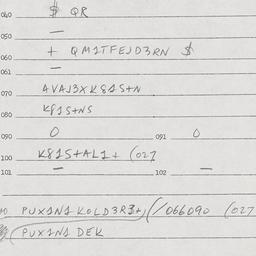 040 $ QR
050 —
+ QM1TFEJD3RN $
060 —
061
070 AVAJ3XK81S+N
080 K81S+NS
090 0 091 0
100 K81S+AL1+ (027
101 — 102 —
PUX1N1 KOLD3R3+, (/066090 (027
PUX1N1 DEK